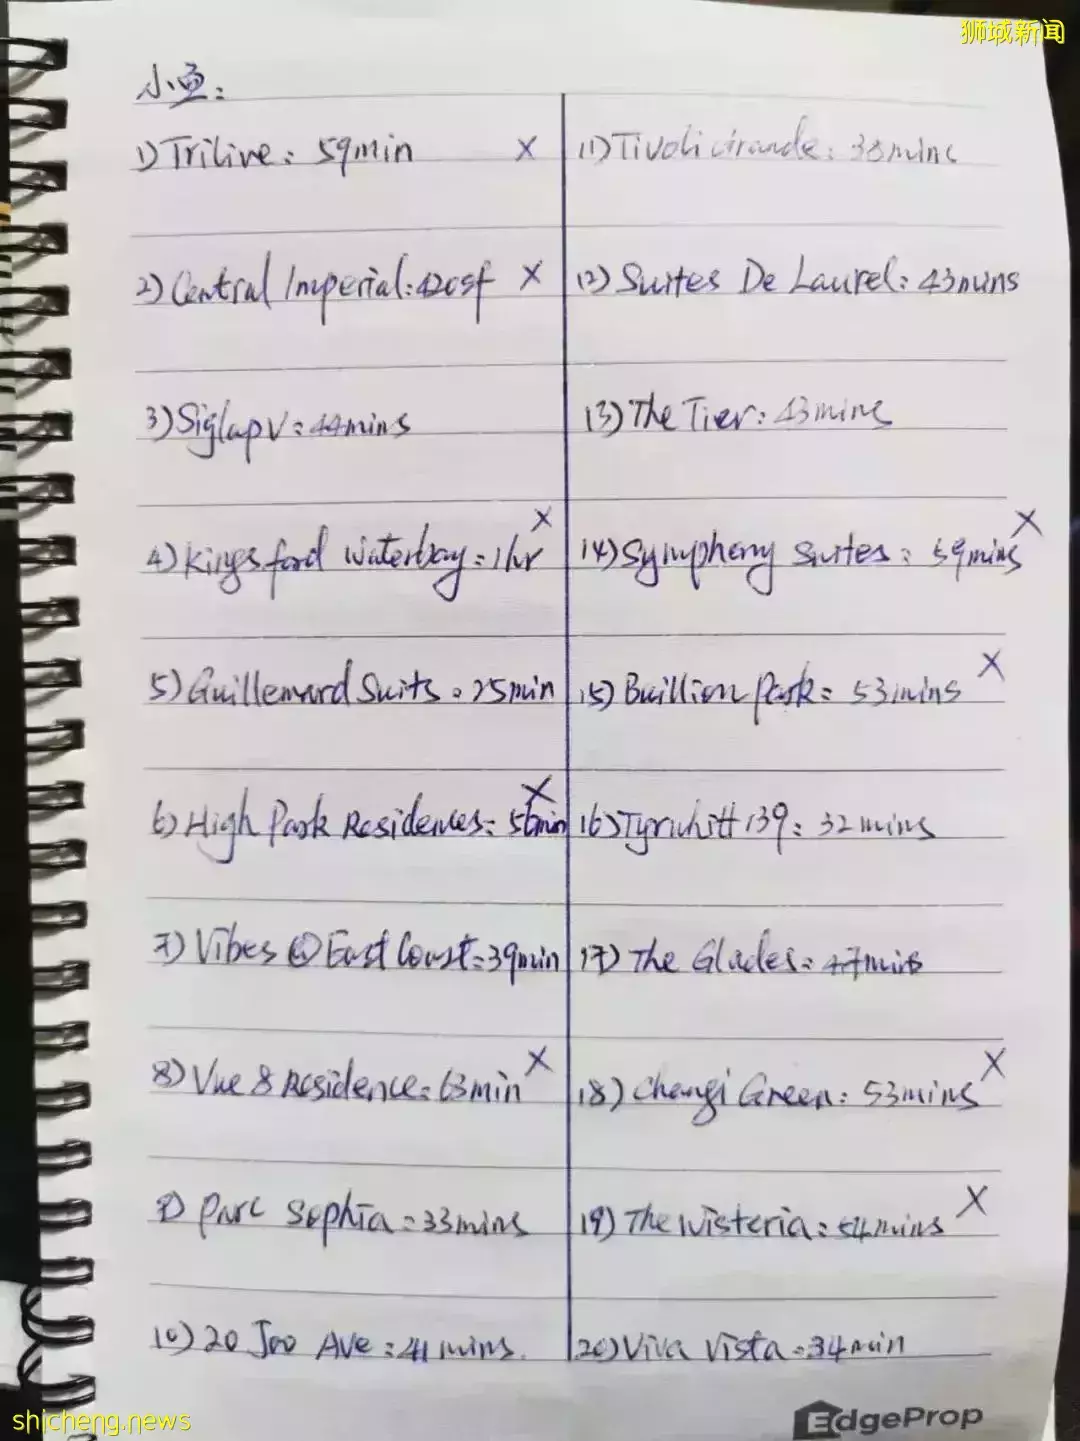 狮城新闻
小鱼:
1) Trilive: 59min X
2) Central Imperial: 420sf X
3) Siglap V: 44mins
4) Kingsford Waterbay: 1hr X
5) Guillemard Suits: 25min
6) High Park Residences: 56min X
7) Vibes @ East Coast: 39min
8) Vue 8 Residence: 63min X
9) Parc Sophia: 33mins
10) 20 Joo Ave: 41 mins.
11) Tivoli Grande: 38mins
12) Suites De Laurel: 43mins
13) The Tier: 43mins
14) Symphony Suites: 59mins X
15) Buillion Park: 53mins X
16) 139: 32mins
17) The Glades: 47mins
18) Changi Green: 53mins X
19) The Wisteria: 54mins X
20) Viva Vista: 34min
EdgeProp
shicheng.news